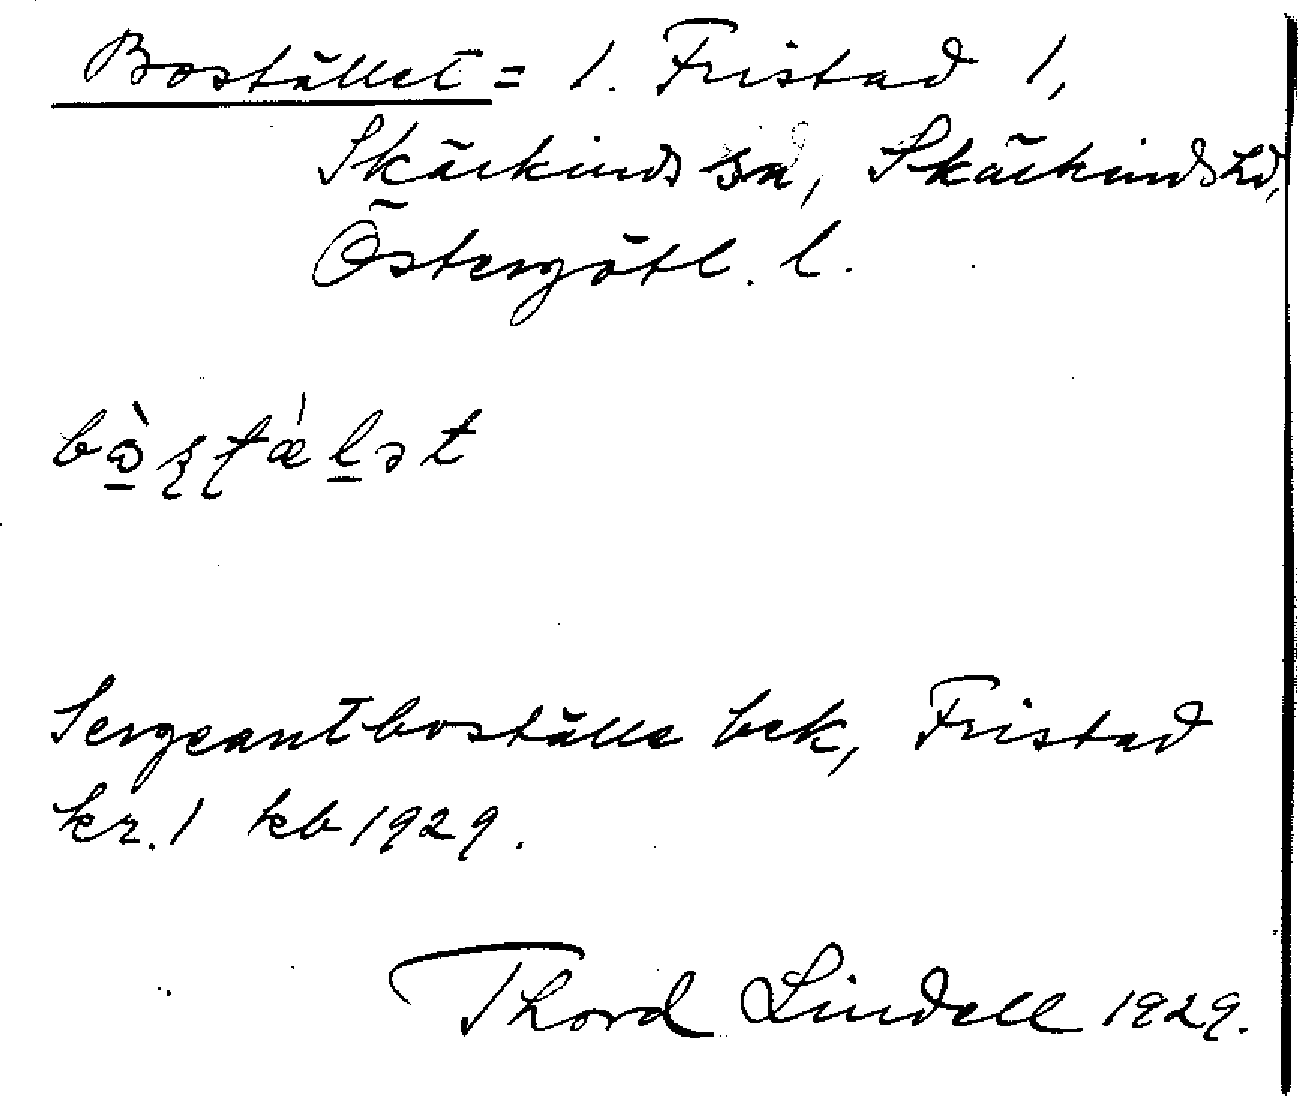 Bostället = 1. Fristad 1,
Skärkinds sn, Skärkinds hd,
Östergötl. l.
bɷ̀ʂʈǽlət
Sergeantboställe bek, Fristad
kr. 1 kb 1929.
Thord Lindell 1929.